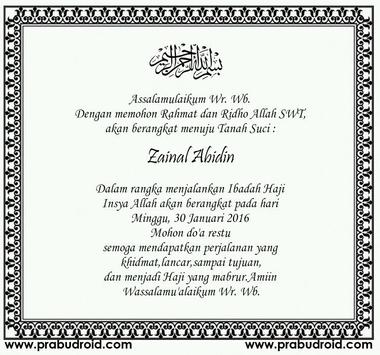 بسم الله الرحمن الرحيم
Assalamulaikum Wr. Wb.
Dengan memohon Rahmat dan Ridho Allah SWT,
akan berangkat menuju Tanah Suci :
Zainal Abidin
Dalam rangka menjalankan Ibadah Haji
Insya Allah akan berangkat pada hari
Minggu, 30 Januari 2016
Mohon do'a restu
semoga mendapatkan perjalanan yang
khidmat,lancar,sampai tujuan,
dan menjadi Haji yang mabrur.Amiin
Wassalamu'alaikum Wr. Wb.
www.prabudroid.com www.prabudroid.com